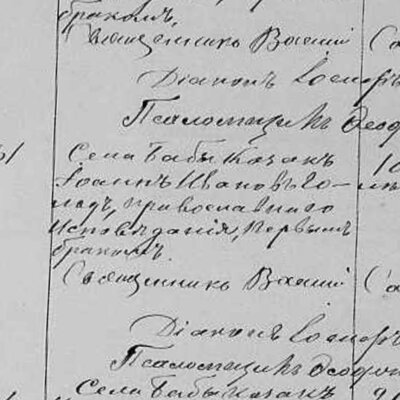 бракомъ,
Священникъ Василій
Діаконъ Іосифъ
Псаломщикъ Ѳеод
Села Бабы Козакъ
Іоаннъ Ивановъ Го-
лодъ, православнаго
исповѣданія, первымъ
бракомъ.
Священникъ Василій
Діаконъ Іосифъ
Псаломщикъ Ѳеодо
Села Бабы Козакъ